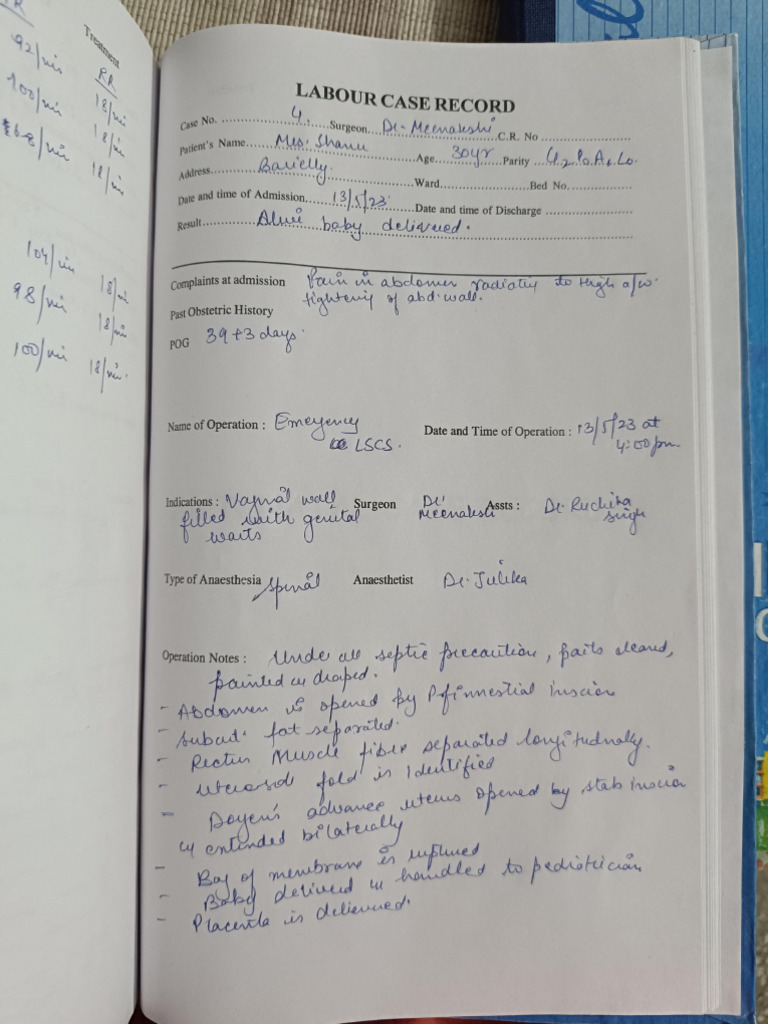 Treatment
RR
92/min 18/min
100/min 18/min
68/min 18/min
104/min 18/min
98/min 18/min
100/min 18/min
LABOUR CASE RECORD
Case No. 4. Surgeon Dr. Meenakshi C.R. No
Patient's Name Mrs. Shanu Age 30yr Parity G2P0A1L0
Address Barielly. Ward Bed No.
Date and time of Admission 13/5/23 Date and time of Discharge
Result Alive baby delivered.
Complaints at admission Pain in abdomen radiating to thigh a/w
tightening of abd wall.
Past Obstetric History
POG 39+3 days.
Name of Operation : Emergency Date and Time of Operation : 13/5/23 at
LSCS. 4:00 pm
Indications : Vaginal wall Surgeon Dr. Assts : Dr. Ruchika
filled with genital Meenakshi Singh
warts
Type of Anaesthesia Spinal Anaesthetist Dr. Julika
Operation Notes : Under all septic precaution, parts cleaned,
painted & draped.
- Abdomen is opened by Pfinnestial inscion
- subcut. fat separated.
- Rectus Muscle fiber separated longitudnally.
- fold is Identified
- Doyen's advance uterus opened by stab inscion
& extended bilaterally
- Bag of membrane is ruptured
- Baby delivered & handled to pediatrician
- Placenta is delievered.